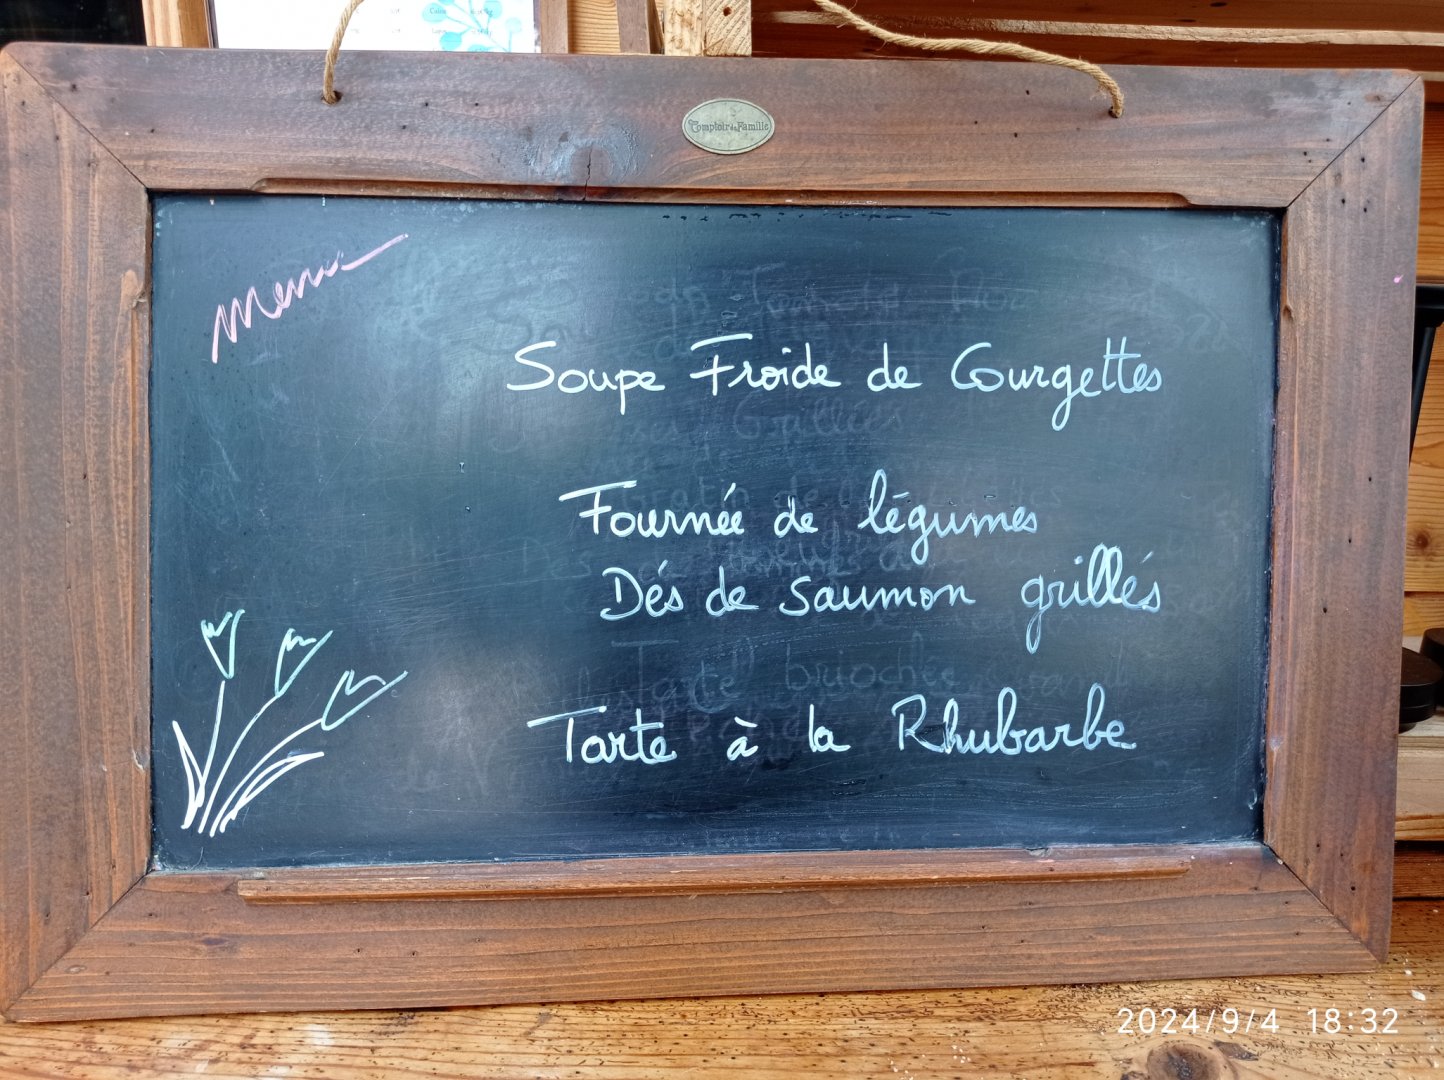 Comptoir de Famille
Menu
Soupe Froide de Courgettes
Fournée de légumes
Dés de saumon grillés
Tarte à la Rhubarbe
2024/9/4 18:32